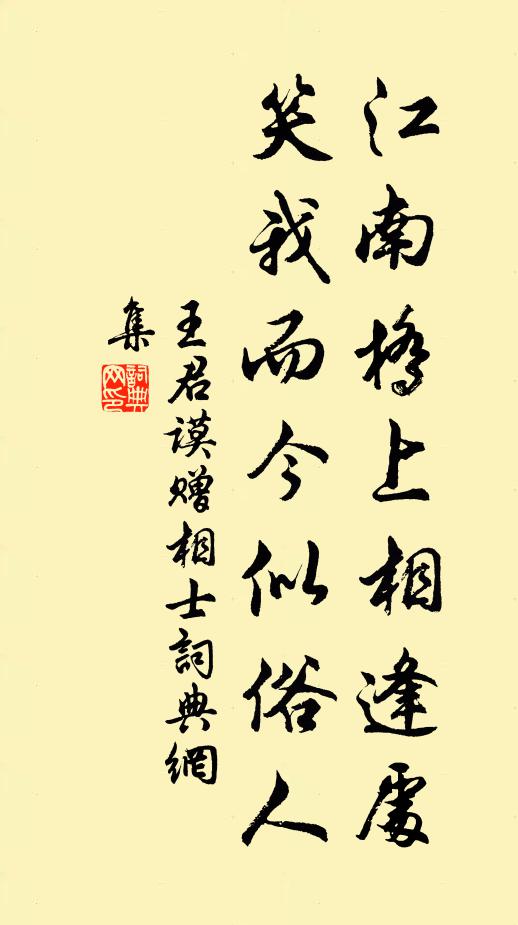 江南橋上相逢處
笑我而今似俗人
王君謨贈相士詞典網
集
詞典
网印